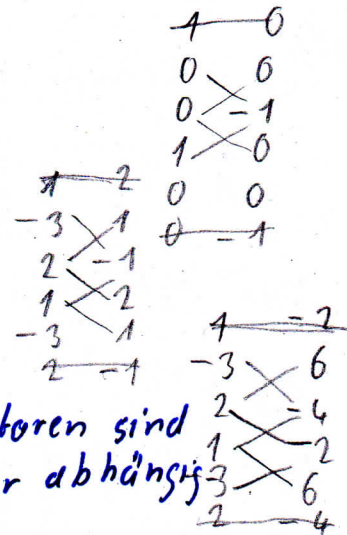 1 0
0 0
0 -1
1 0
0 0
0 -1
1 2
-3 1
2 -1
1 2
-3 1
2 -1
1 -2
-3 6
2 -4
1 -2
-3 6
2 -4
toren sind
r abhängig